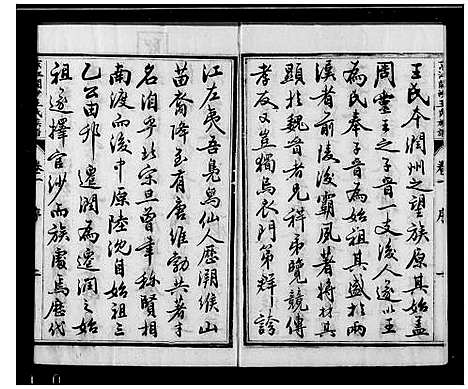 王氏本潤州之望族原其始蓋
周靈王之子晋一支後人遂以王
為氏奉子晋為始祖其盛於兩
漢者前陵後霸夙著將材其
顯於魏晋者兄祥弟覽競傳
孝友又豈獨烏衣門第群誇
江左夷吾鳧舄仙人歷溯緱山
苗裔降至有唐維勃共著才
名洎乎北宗旦曾車称賢相
南渡而後中原陸沈自始祖三
乙公由邦遷潤為遷潤之始
祖遂擇官沙而族處焉歷代
卷一 序 一
卷一 序